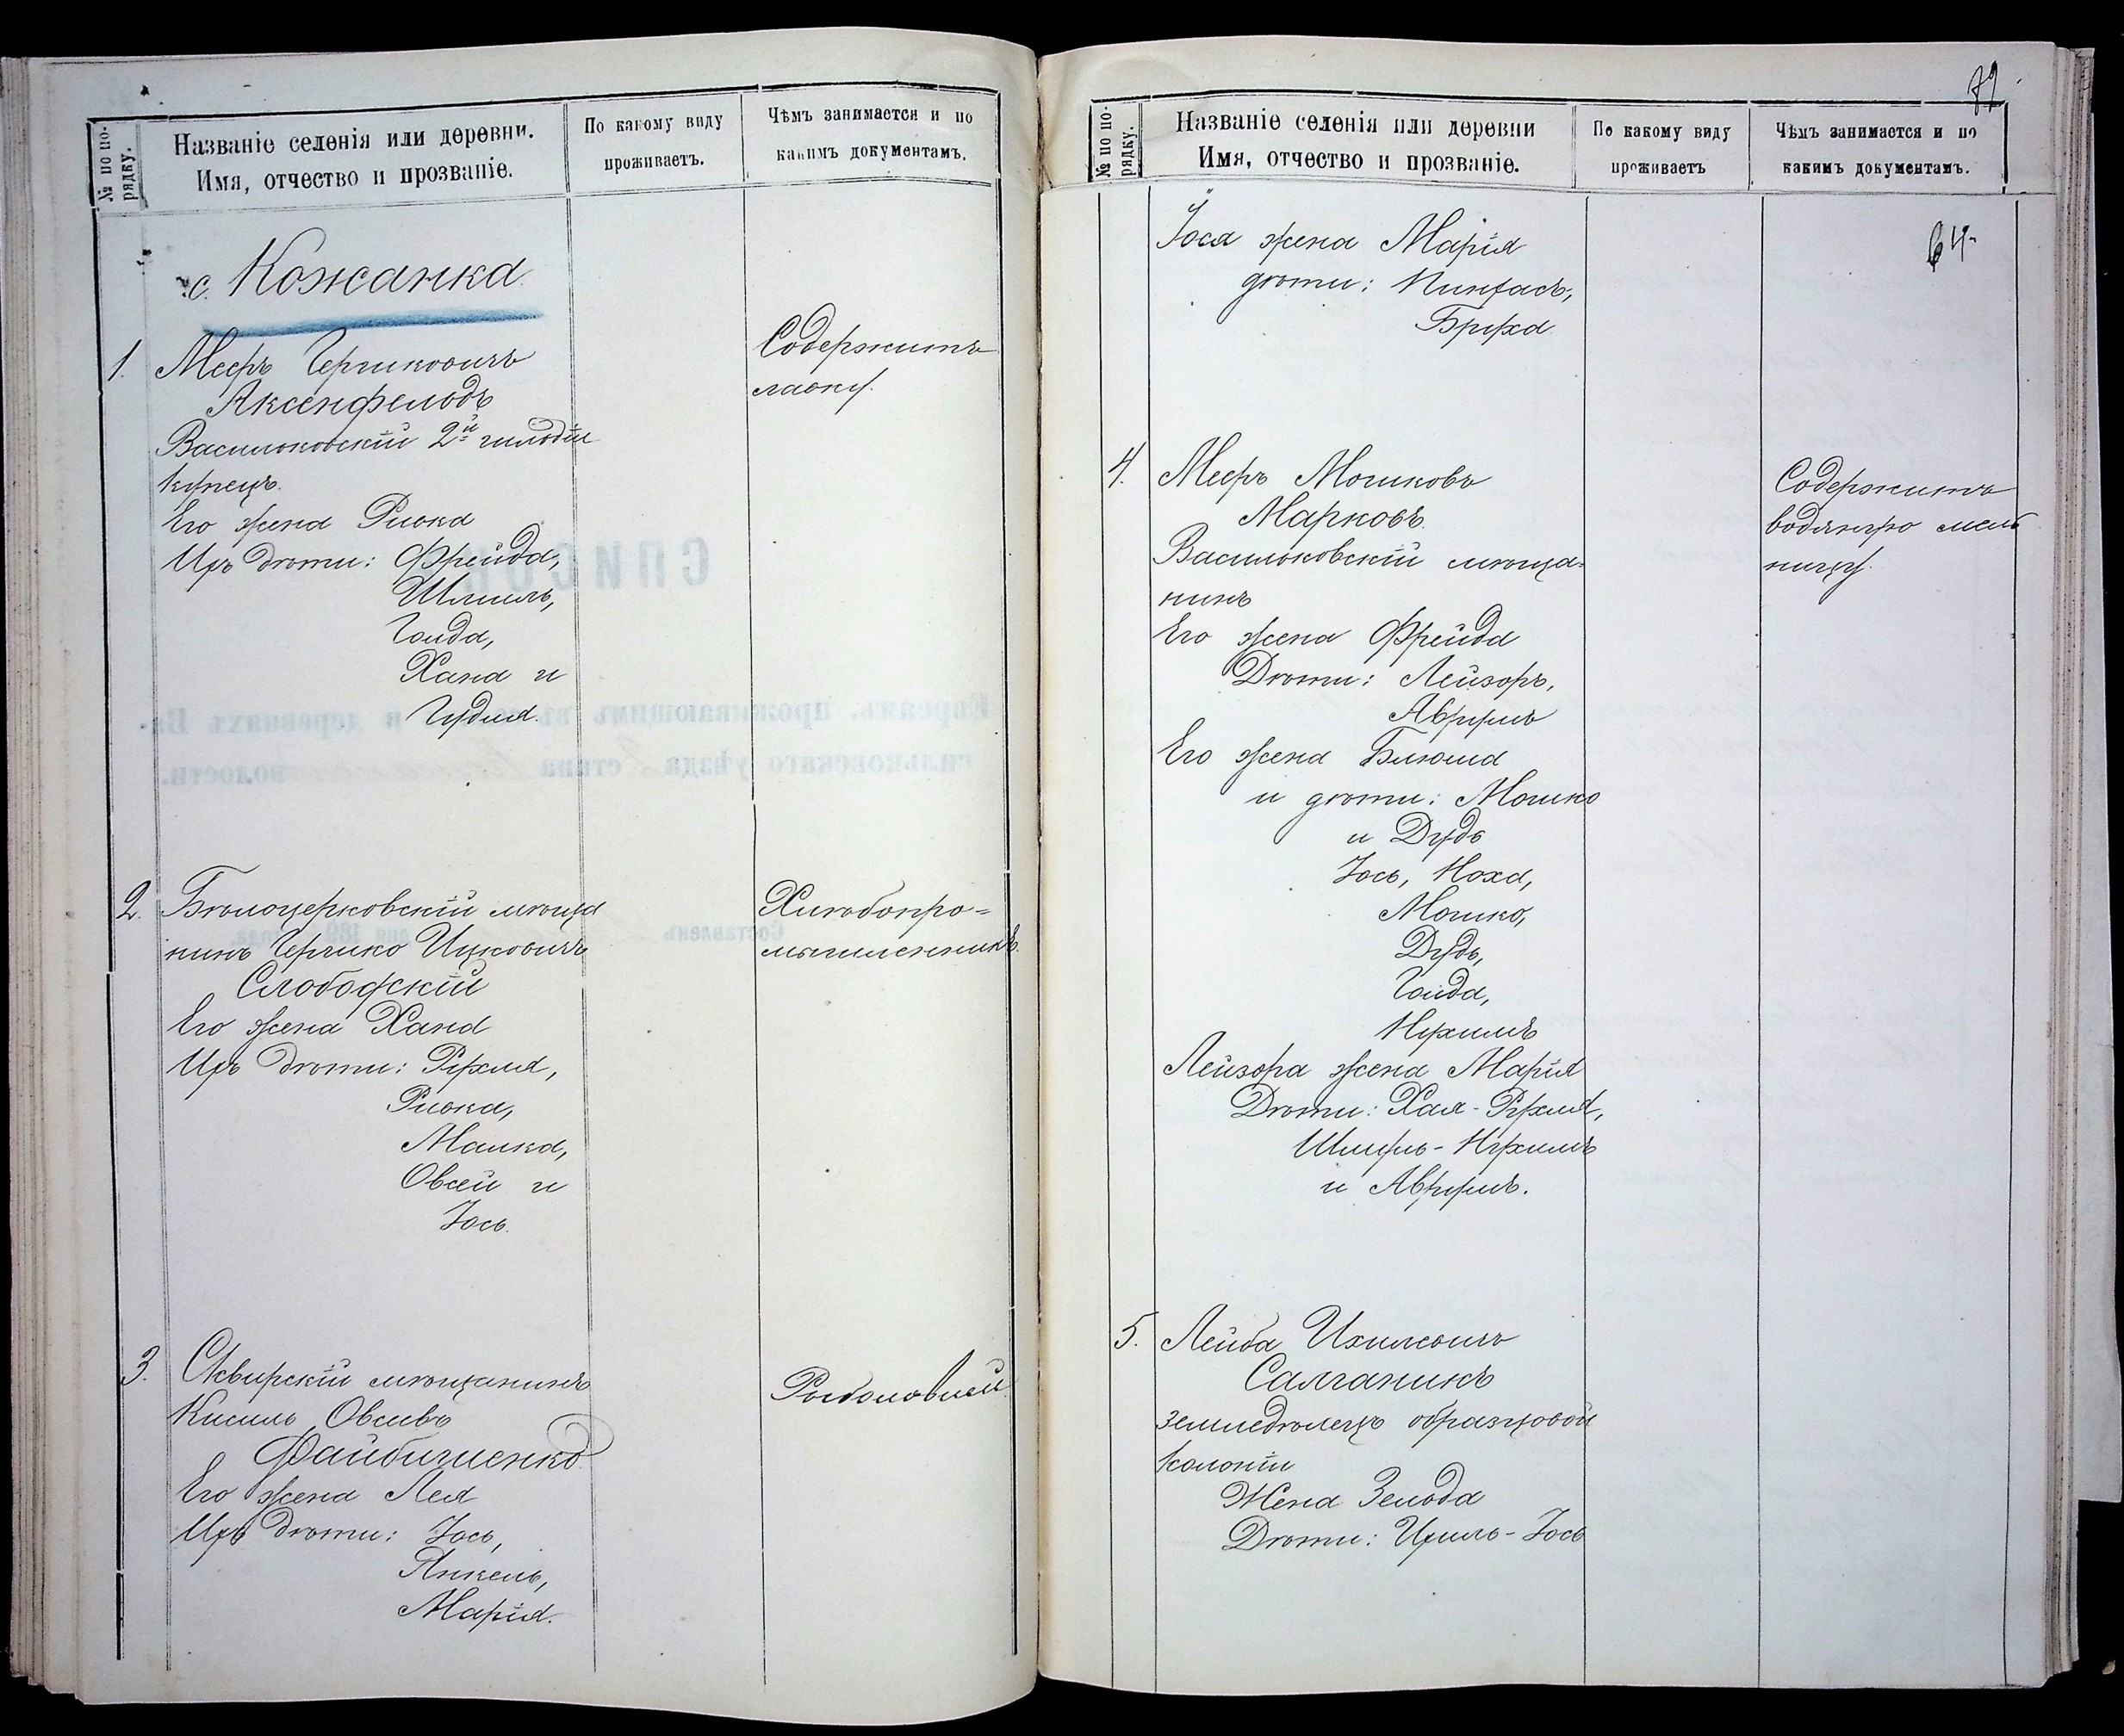 № по порядку.
Названіе селенія или деревни.
Имя, отчество и прозваніе.
По какому виду
проживаетъ.
Чѣмъ занимается и по
какимъ документамъ.
с. Кожанка
1. Мееръ Гершковичъ
Аксенфельдъ
Васильковскій 2й гильдіи
купецъ.
Его жена Ривка
Ихъ дѣти: Фрейда,
Шліиль,
Голда,
Хана и
Гудля.
Содержитъ
лавку.
2. Бѣлоцерковскій мѣща
нинъ Гершко Ицковичъ
Слободскій
Его жена Хана
Ихъ дѣти: Рухля,
Ривка,
Малка,
Овсей и
Іось.
Хлѣбопро-
мышленникъ.
3. Сквирскій мѣщанинъ
Кисиль Овсіевъ
Файбишенко
Его жена Лея
Ихъ дѣти: Іось,
Янкель,
Марія.
Рыболовлей
72
64
№ по порядку.
Названіе селенія или деревни
Имя, отчество и прозваніе.
По какому виду
проживаетъ
Чѣмъ занимается и по
какимъ документамъ.
Іося жена Марія
дѣти: Пинхасъ,
Бруха
4. Мееръ Мошковъ
Марковъ
Васильковскій мѣща-
нинъ
Его жена Фрейда
Дѣти: Лейзоръ,
Аврумъ
Его жена Блюма
и дѣти: Мошко
и Дудь
Іось,Ноха,
Мошко,
Дудь,
Голда,
Нухимъ
Лейзора жена Марія
Дѣти: Хая-Рухля,
Шмуль-Нухимъ
и Аврумъ.
Содержитъ
водяную мель
ницу.
5. Лейба Ихилевичъ
Салганикъ
земледѣлецъ образцовой
колоніи
Жена Зельда
Дѣти: Ихиль-Іось